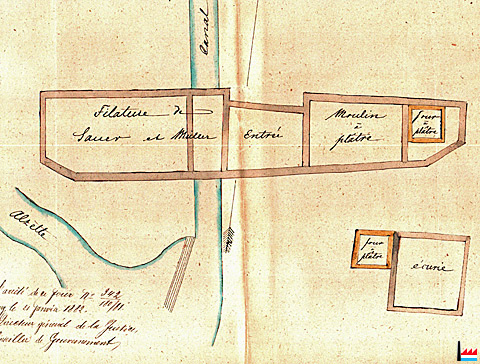 Canal
Filature de
Sauer et Muller
Entrée
Moulin
à
plâtre
four
à
plâtre
Alzette
four
à
plâtre
écurie
arrêté de ce jour No 342
le janvier 1882.
Directeur général de la Justice,
Conseiller de Gouvernement,